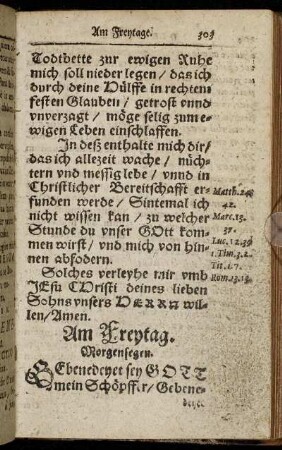 Am Freytage. 303
Todtbette zur ewigen Ruhe
mich soll nieder legen / das ich
durch deine Hülffe in rechtem
festen Glauben / getrost vnnd
vnverzagt / möge selig zum e-
wigen Leben einschlaffen.
In deß enthalte mich dir /
das ich allezeit wache / nüch-
tern vnd messig lebe / vnnd in
Christlicher Bereitschafft er-
funden werde / Sintemal ich
nicht wissen kan / zu welcher
Stunde du vnser GOtt kom-
men wirst / vnd mich von hin-
nen abfodern.
Matth. 24.
42.
Marc. 13.
37.
Luc. 12.
1. Thes. 5. 2.
Tit. 1. 7.
Rom. 13. 13.
Solches verleyhe mir vmb
JEsu CHristi deines lieben
Sohns vnsers HERRN wil-
len / Amen.
Am Freytag.
Morgensegen.
GEbenedeyet sey GOTT
mein Schöpffer / Gebene-